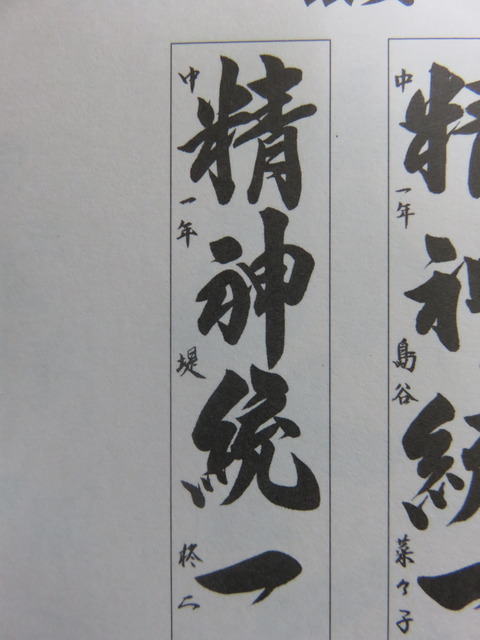 精神統一
中一年 島谷 菜々子
精神統一
中一年 堤 柊二